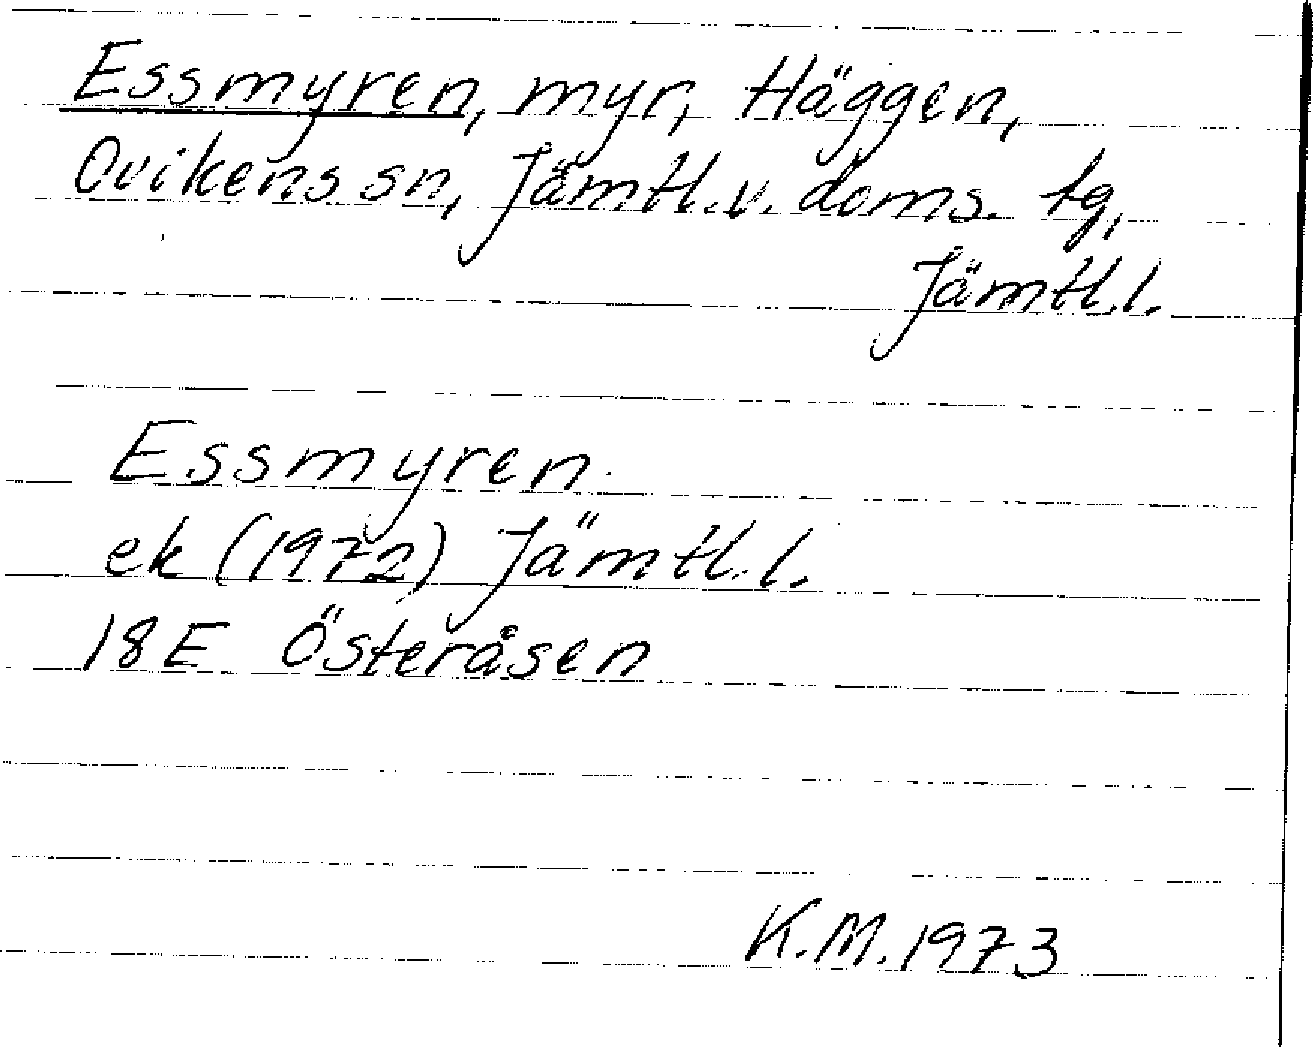 Essmyren, myr, Häggen,
Ovikens sn, Jämtl.v. doms. tg,
Jämtl.l.
Essmyren
ek (1972) Jämtl.l.
18E Österåsen
K.M. 1973